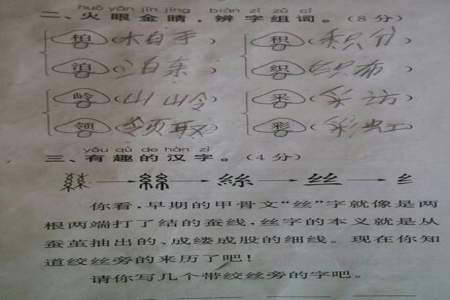 huǒ yǎn jīn jīng biàn zì zǔ cí
二、火眼金睛，辨字组词。(8分)
柏( ) 积(积分)
泊( ) 织(织布)
岭(山山令) 采(采访)
领(领取) 彩(彩虹)
yǒu qù de hàn zì
三、有趣的汉字。(4分)
絲 丝 纟
你看，早期的甲骨文“丝”字就像是两
根两端打了结的蚕线，丝字的本义就是从
蚕茧抽出的、成缕成股的细线。现在你知
道绞丝旁的来历了吧！
请你写几个带绞丝旁的字吧。